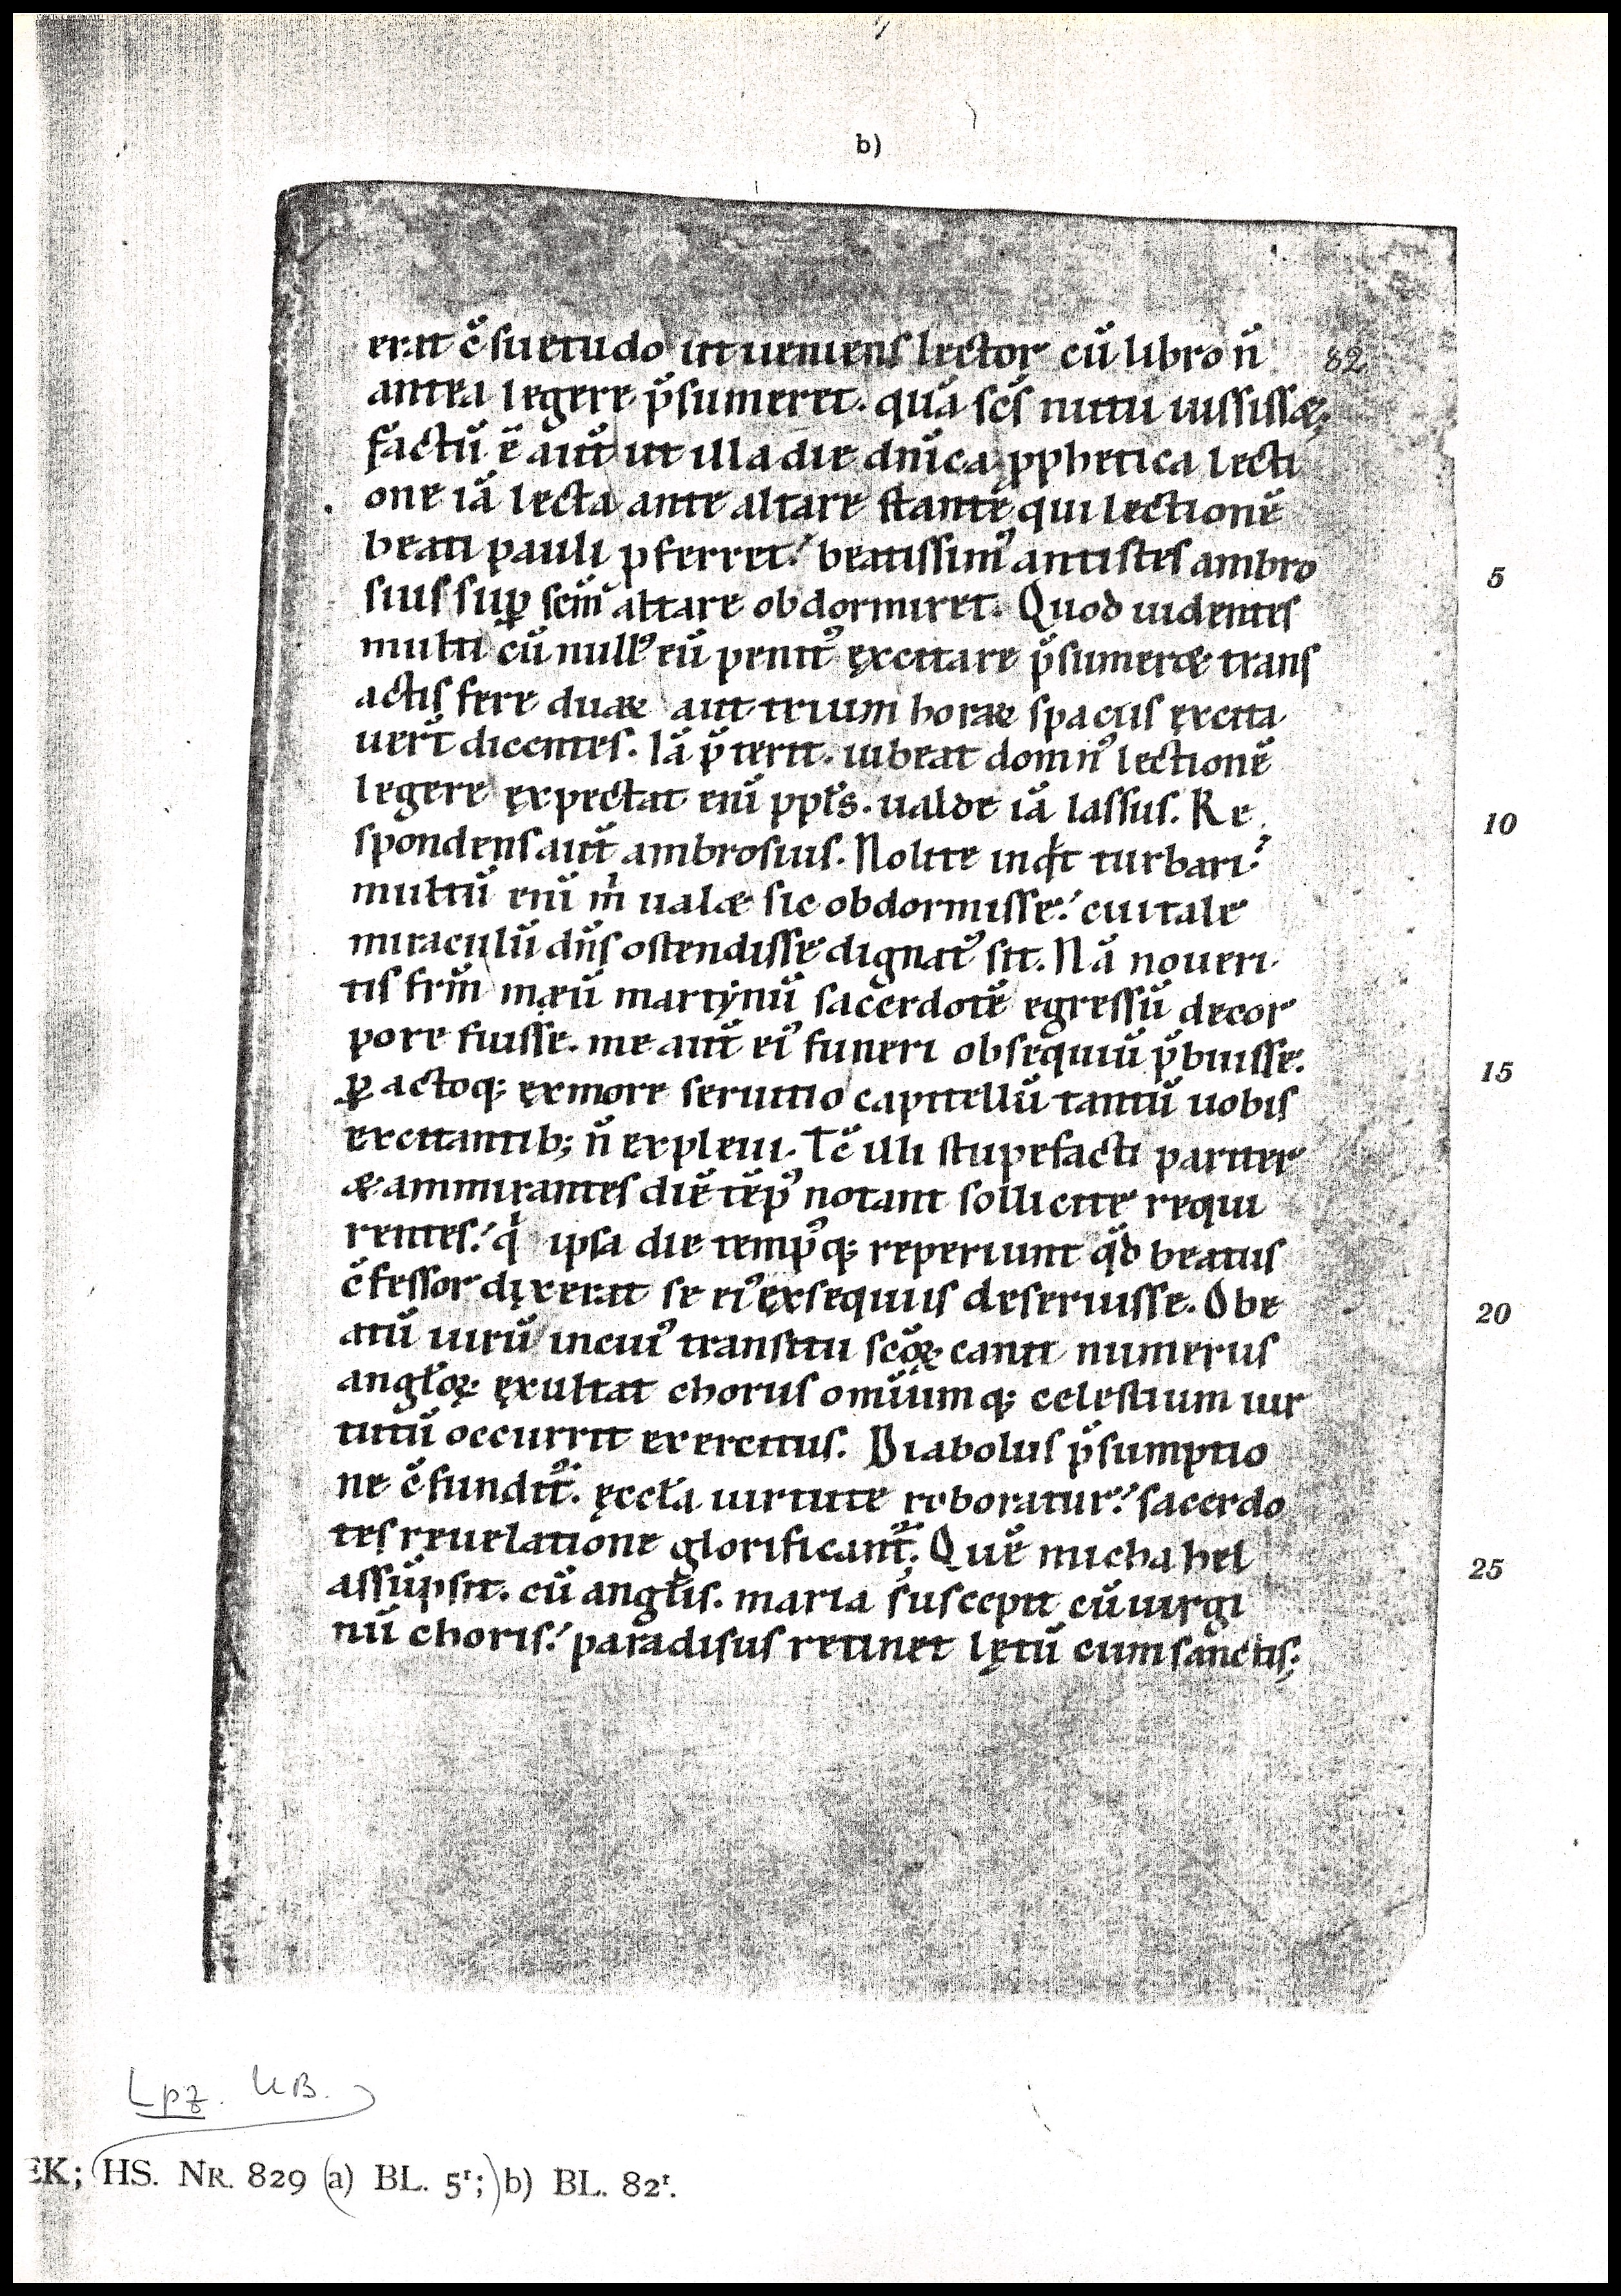 b)
erat c̄suetudo ut ueniens lector cū libro n̄
82
antea legere p̄sumeret. quā sc̄s nutu iussisset;
factū ē aut̄ ut illa die dn̄ica ꝓphetica lecti
one iā lecta ante altare stante qui lectionē
beati pauli ꝓferret. beatissimꝰ antistes ambro
5
sius suꝑ sc̄m altare obdormiret. Quod uidentes
multi cū nullꝰ eū penitꝰ ęxcitare p̄sumeret trans
actis fere duaꝝ aut trium horaꝝ spaciis ęxcita
uer̄t dicentes. Iā p̄terit. iubeat domnꝰ lectionē
legere ęxpectat enī ppl̄s. ualde iā lassus. Re
10
spondens aut̄ ambrosius. Nolite inqͥt turbari.
multū enī m̍ ualet sic obdormisse. cui tale
miraculū dn̄s ostendisse dignatꝰ sit. Nā noueri
tis frm̄ meū martynū sacerdotē egressū de cor
pore fuisse. me aut̄ eiꝰ funeri obsequiū p̄buisse.
15
ꝑactoq; ęx more seruitio capitellū tantū uobis
excitantib; n̄ expleui. Tc̄ illi stupefacti pariter
& ammirantes diē tēpꝰ notant sollicite requi
rentes. qͥ ipsa die tempꝰq; reperiunt qd̄ beatus
c̄fessor dixerat se eiꝰ ęxsequiis deseruisse. O be
20
atū uirū in cuiꝰ transitu sc̄oꝝ canit numerus
angl̄oꝝ ęxultat chorus omīumq; celestium uir
tutū occurrit exercitus. Diabolus p̄sumptio
ne c̄fundit᷑. ęccl̄a uirtute roboratur. sacerdo
tes reuelatione glorificant᷑. Quē michahel
25
assūpsit. cū angl̄is. maria suscepit cū uirgi
nū choris. paradisus retinet lętū cum sanctis;
Lpz. UB.
EK; HS. NR. 829 (a) BL. 5ʳ; b) BL. 82ʳ.